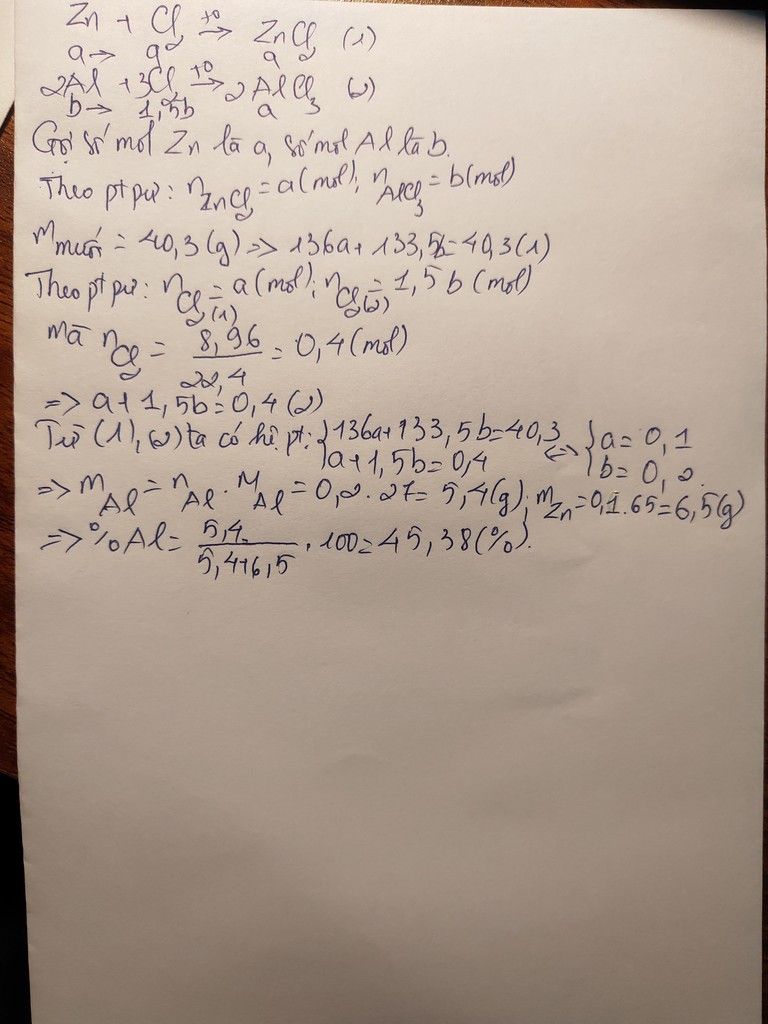 Zn + Cl2 t0→ ZnCl2 (1)
a→ a a
2Al + 3Cl2 t0→ 2AlCl3 (2)
b→ 1,5b a
Gọi số mol Zn là a, số mol Al là b.
Theo ptpư: nZnCl2 = a(mol); nAlCl3 = b(mol)
mmuối = 40,3(g) => 136a + 133,5b = 40,3 (1)
Theo ptpư: nCl2(1) = a(mol); nCl2(2) = 1,5b(mol)
mà nCl2 = 8,96/22,4 = 0,4(mol)
=> a + 1,5b = 0,4 (2)
Từ (1), (2) ta có hệ pt: {136a + 133,5b = 40,3 <=> {a = 0,1
a + 1,5b = 0,4 b = 0,2.
=> mAl = nAl . MAl = 0,2 . 27 = 5,4(g); mZn = 0,1 . 65 = 6,5(g)
=> %Al = 5,4/5,4+6,5 . 100 = 45,38(%).